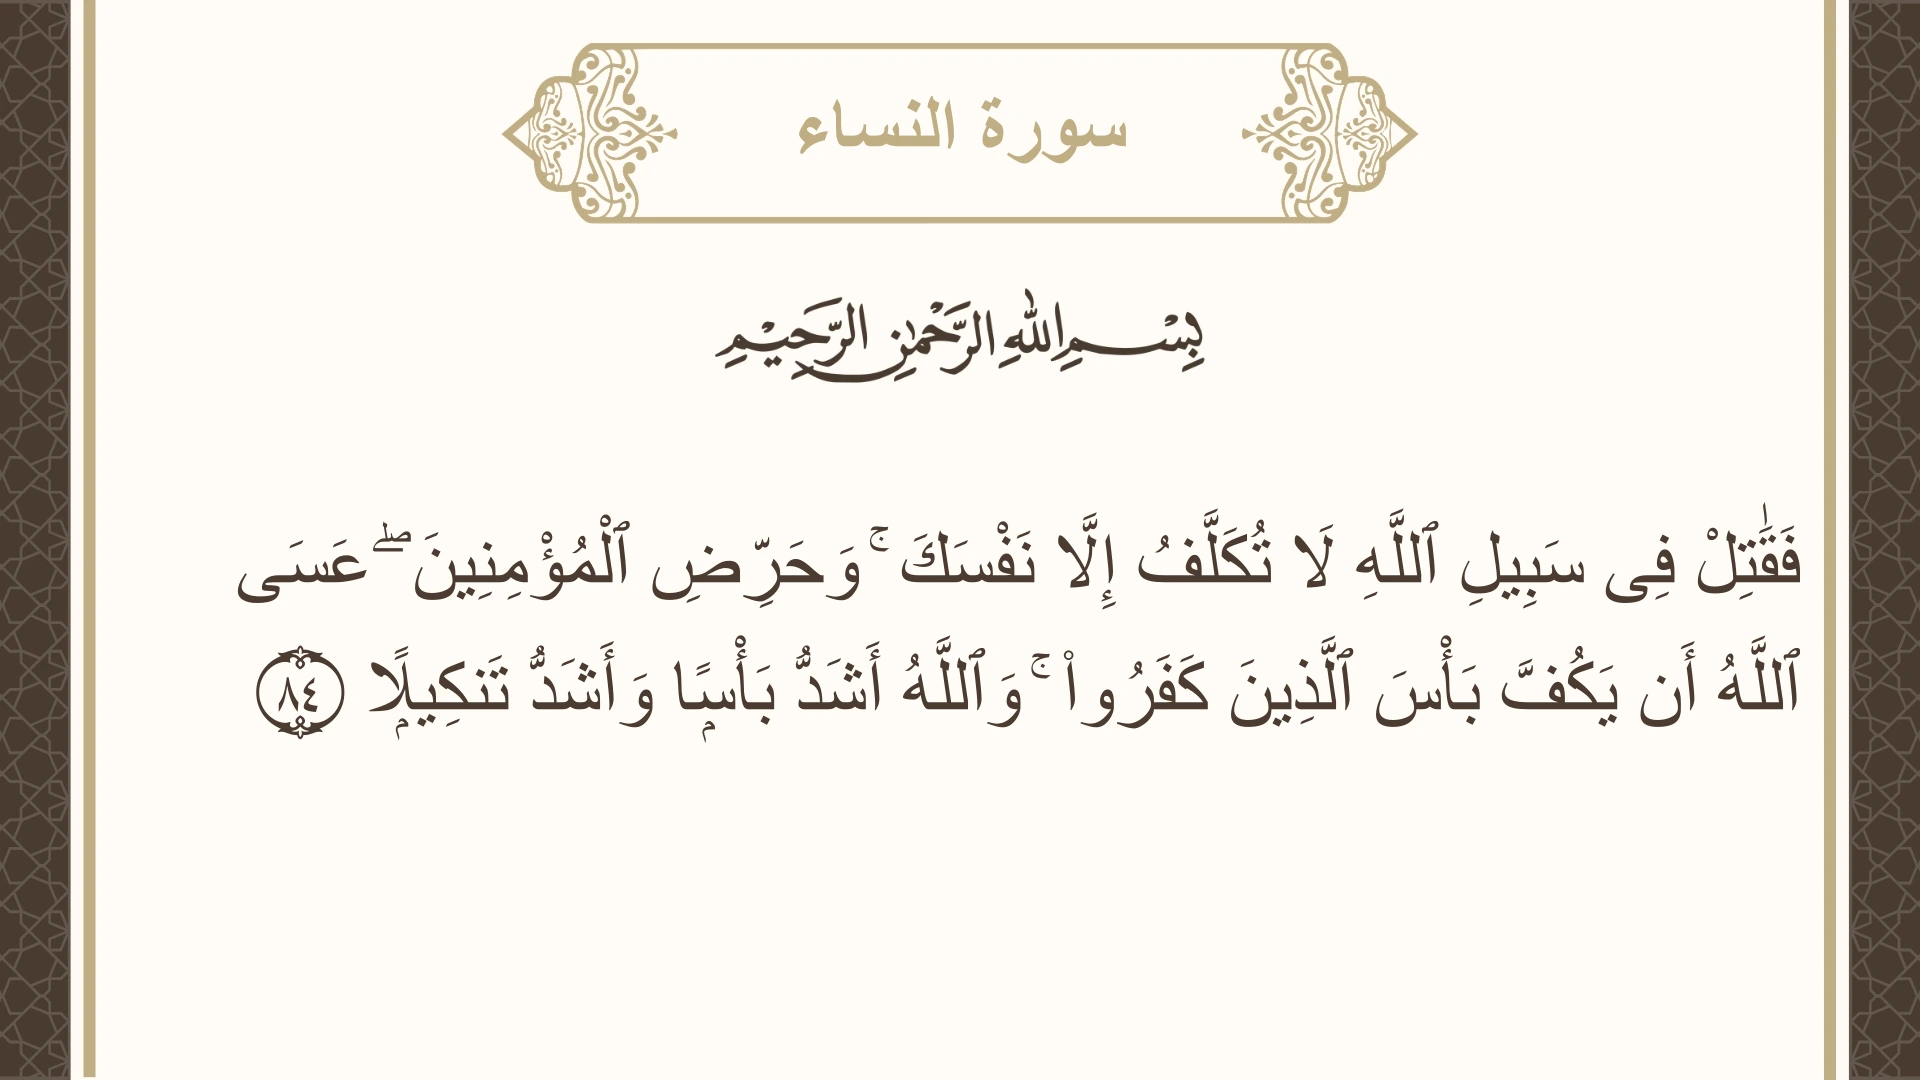 سورة النساء
بِسْمِ اللهِ الرَّحْمٰنِ الرَّحِيْمِ
فَقَـٰتِلْ فِى سَبِيلِ ٱللَّهِ لَا تُكَلَّفُ إِلَّا نَفْسَكَ ۚ وَحَرِّضِ ٱلْمُؤْمِنِينَ ۖ عَسَى
ٱللَّهُ أَن يَكُفَّ بَأْسَ ٱلَّذِينَ كَفَرُوا۟ ۚ وَٱللَّهُ أَشَدُّ بَأْسًۭا وَأَشَدُّ تَنكِيلًۭا ٨٤